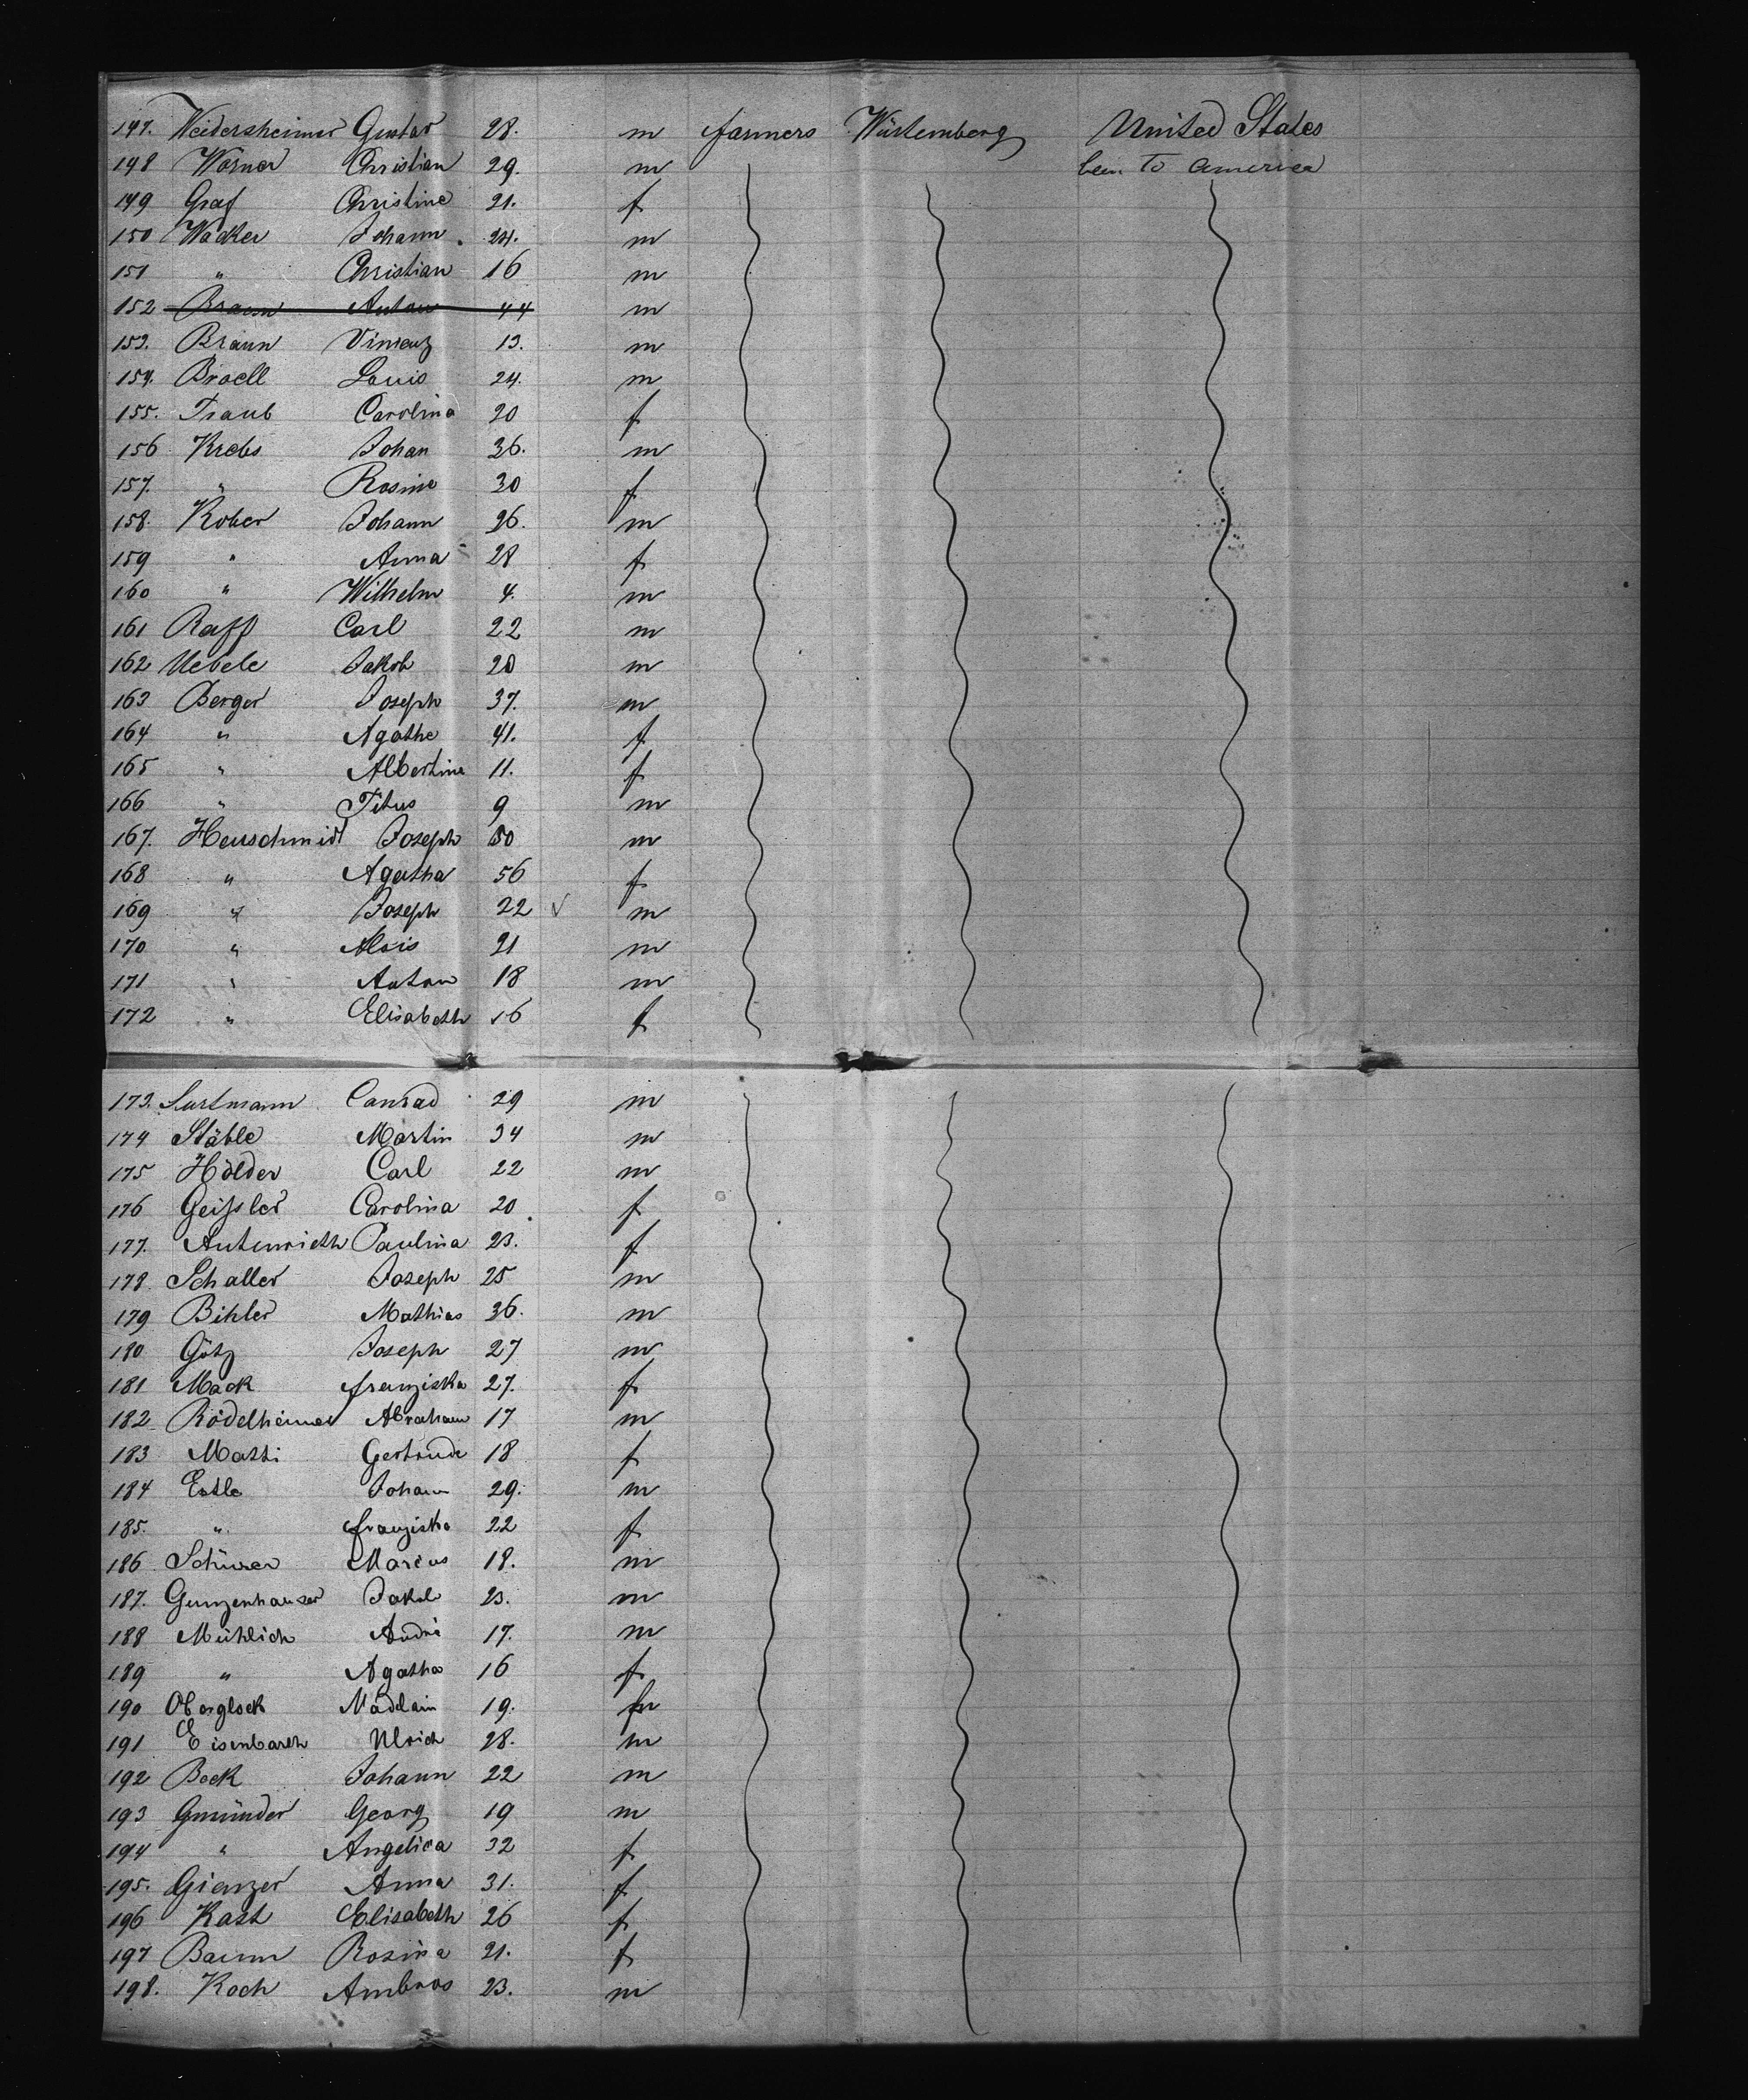 147. Weidersheimer Gustav 28. m farmers Würtemberg United States
148 Wörner Christian 29. m been to america
149 Graf Christine 21. f
150 Wacker Johann 24. m
151 " Christian 16 m
152 Braun Anton 44 m
153. Braun Vinzenz 13. m
154. Broell Louis 24. m
155. Traub Carolina 20 f
156 Krebs Johan 36. m
157. " Rosine 30 f
158. Kober Johann 26. m
159 " Anna 28 f
160 " Wilhelm 4. m
161 Raff Carl 22 m
162 Uebele Jakob 20 m
163 Berger Joseph 37. m
164 " Agathe 41. f
165 " Albertine 11. f
166 " Titus 9 m
167. Heuschmidt Joseph 50 m
168 " Agatha 56 f
169 " Joseph 22 √ m
170 " Alois 21 m
171 " Anton 18 m
172 " Elisabeth 16 f
173. Conrad 29 m
174 Stäble Martin 34 m
175 Hölder Carl 22 m
176 Geifsler Carolina 20 f
177. Autenrieth Paulina 23. f
178. Schaller Joseph 25 m
179 Bihler Mathias 36. m
180 Götz Joseph 27 m
181 Mack franziska 27. f
182 Rödelheimer Abraham 17 m
183 Matti Gertrude 18 f
184 Estle Johann 29. m
185. " franziska 22 f
186 Schurer Marcus 18. m
187. Gunzenhauser Jakob 23. m
188 Mühlich André 17. m
189 " Agatha 16 f
190 Oberglock Madlain 19. f
191 Eisenbarth Ulrich 28. m
192 Beck Johann 22 m
193 Gmünder Georg 19 m
194 " Angelica 32 f
195. Gienzer Anna 31. f
196 Kast Elisabeth 26 f
197 Baum Rosina 21. f
198. Koch Ambros 23. m